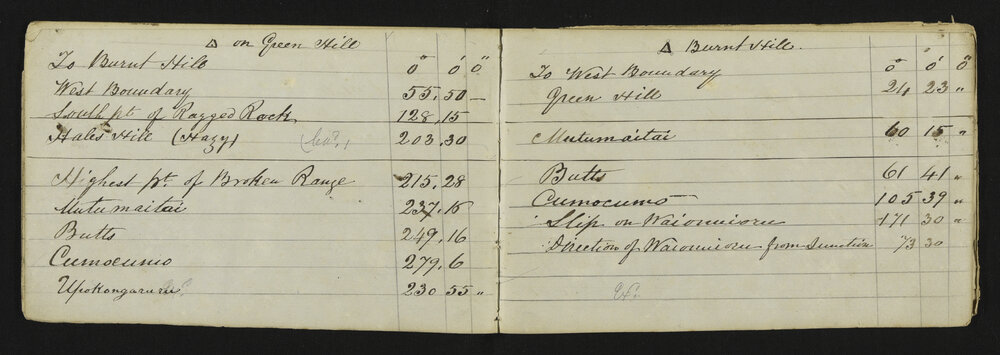 △ on Green Hill
To Burnt Hill 0° 0' 0"
West Boundary 55. 50 —
South pt of Ragged Rock 128. 15
Hales Hill (Hazy) 203. 30
Highest pt. of Broken Range 215. 28
Mutumaitai 237. 15
Butts 249. 16
Cumocumo 279. 6
Upokongaruru 230 55 "
△ Burnt Hill.
To West Boundary 0° 0' 0"
Green Hill 24 23 "
Mutumaitai 60 15 "
Butts 61 41 "
Cumocumo 105 39 "
Slip on Waiomioru 171 30 "
Direction of Waiomioru from Junction 73 30